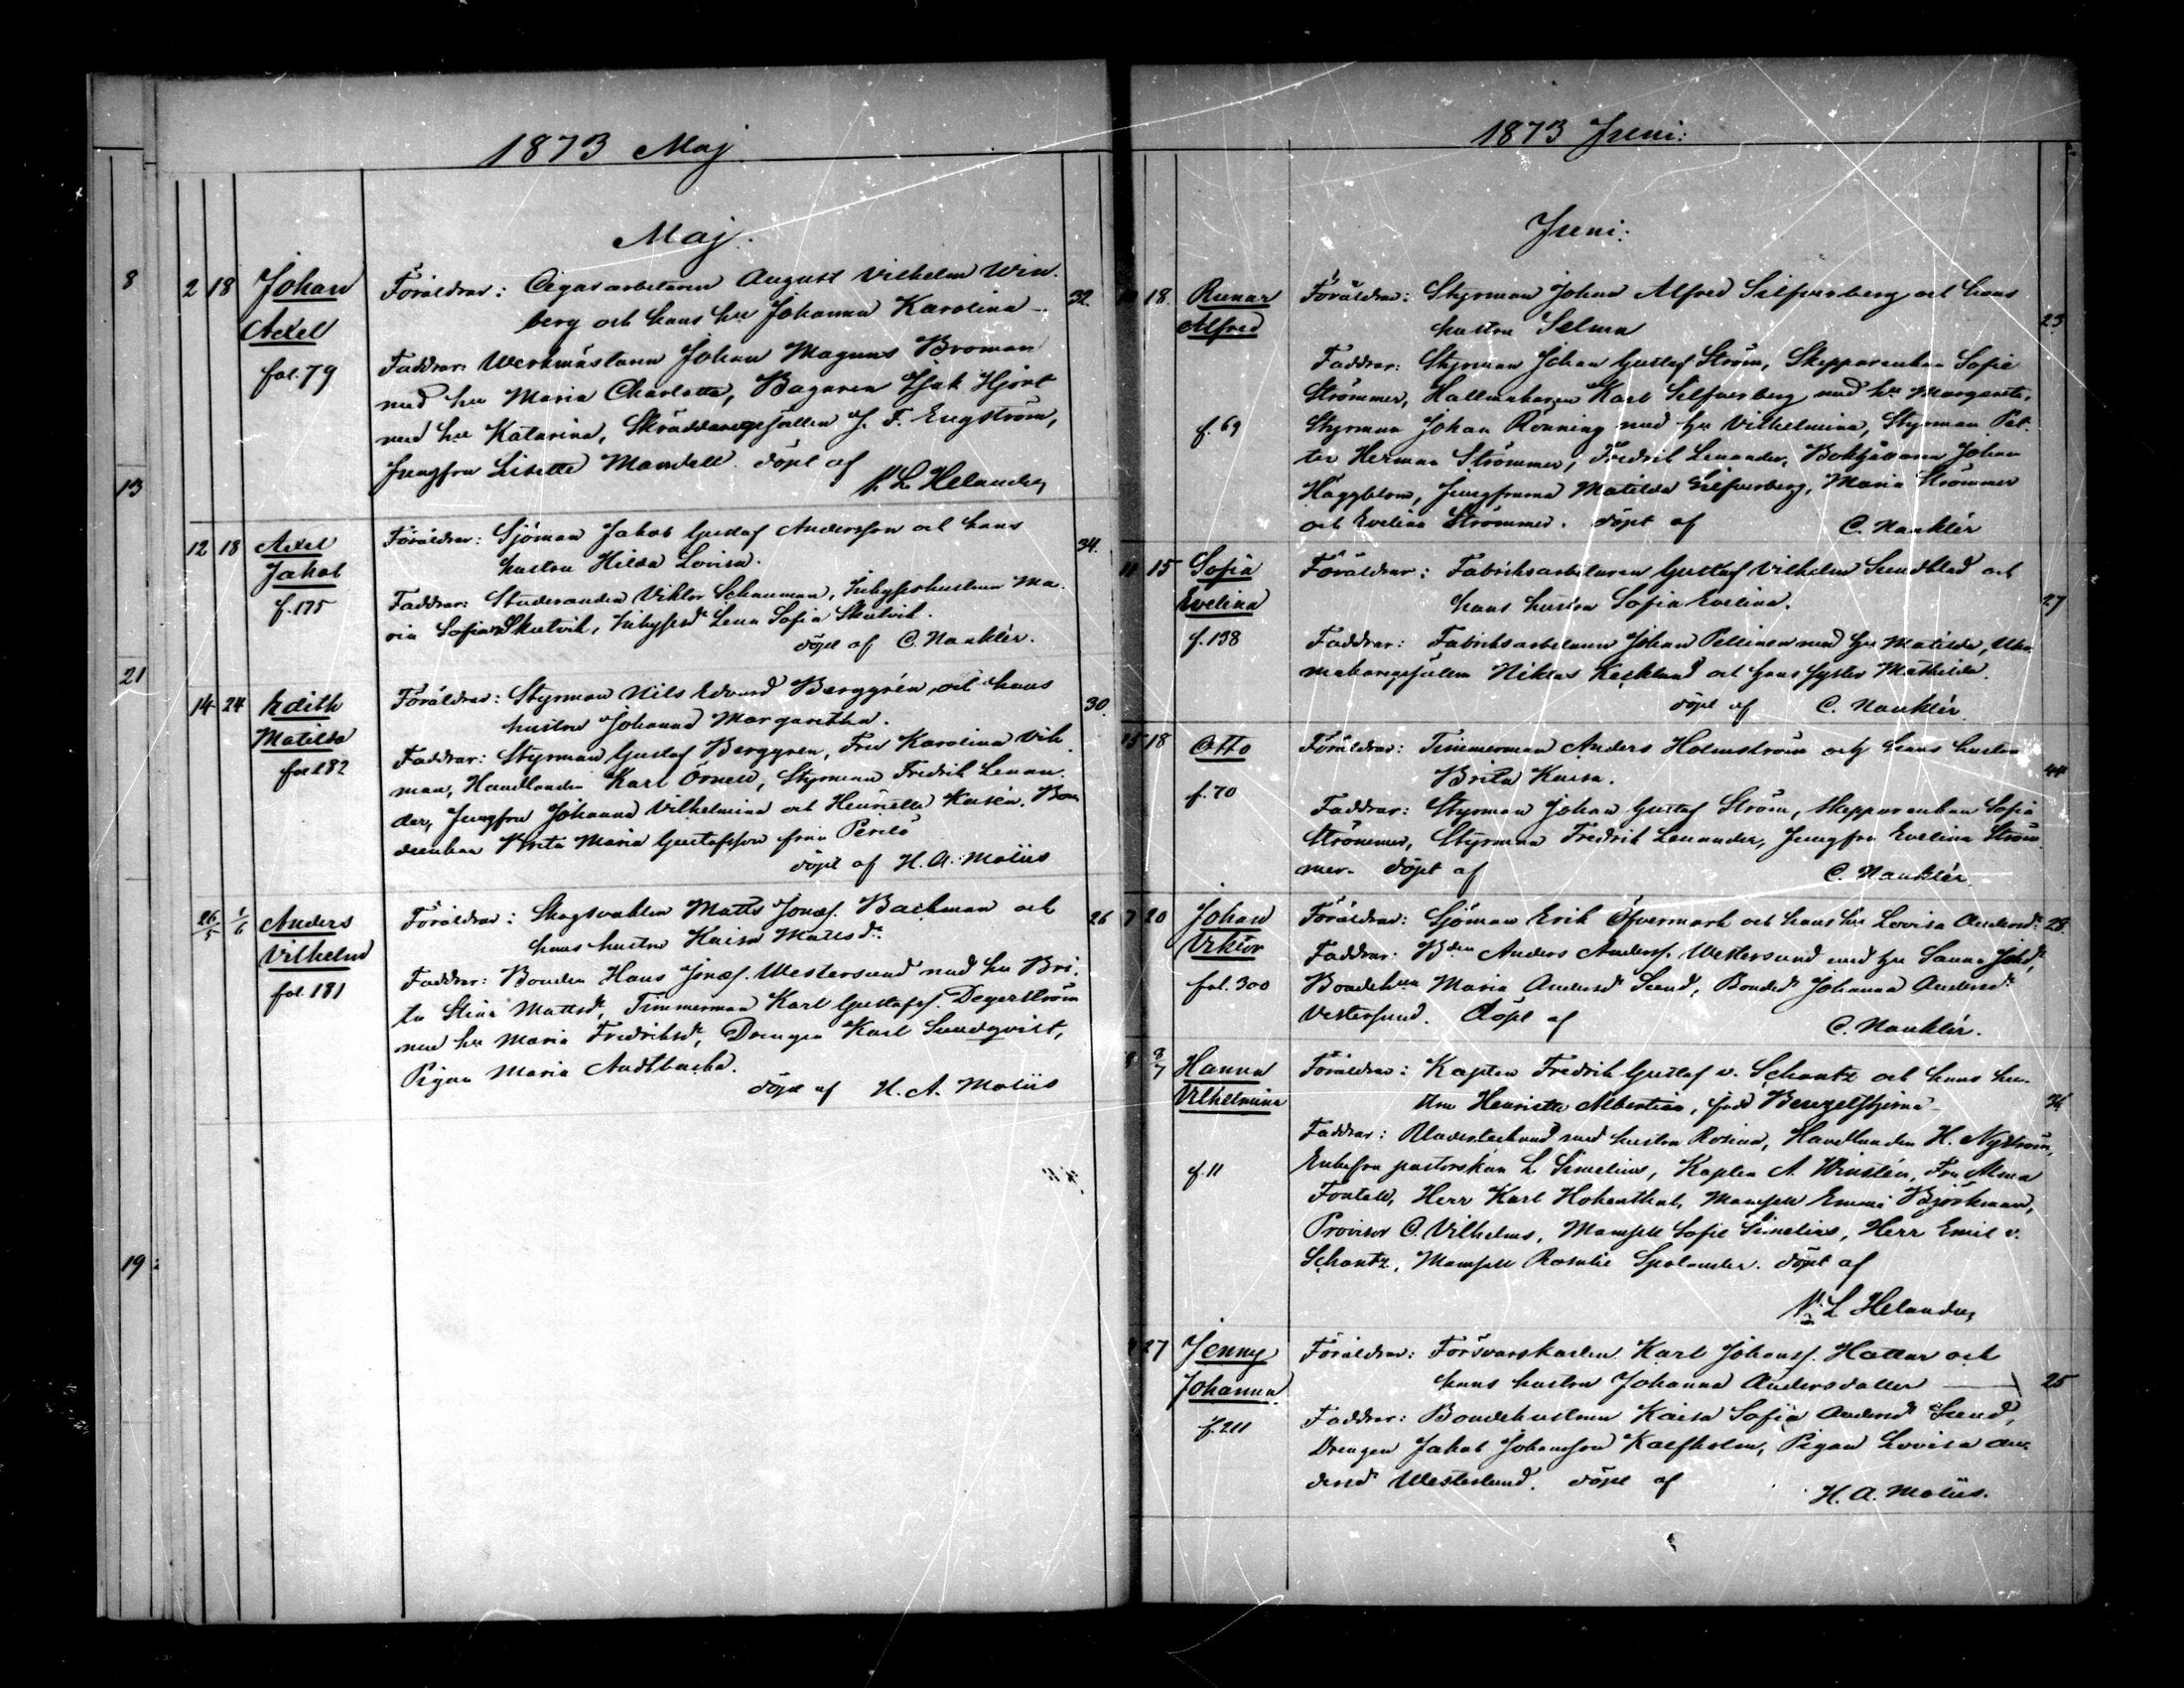 1873 Maj.
Maj.
8
13
21
19
2 18 Johan Axel fol. 79
Föräldrar: Cigararbetaren August Vilhelm Win-
berg och hans hu Johanna Karolina 32.
Faddrar: Werkmästaren Johan Magnus Broman
med hu Maria Charlotta, Bagaren Isak Hjort
med hu Katarina, Skräddaregesällen J. F. Engström,
Jungfru Lisette Mandell. döpt af
N. L. Helander
12 18 Axel Jakob f. 175
Föräldrar: Sjöman Jakob Gustaf Andersson och hans
hustru Hilda Lovisa. 34.
Faddrar: Studeranden Viktor Schauman, Inhyseshustrun Ma-
ria Sofia Skutvik, Inhysesd. Lena Sofia Skutvik.
döpt af C. Nanklér.
14 24 Edith Matilda fol 182
Föräldrar: Styrman Nils Edvard Berggrén och hans
hustru Johanna Margaretha. 30.
Faddrar: Styrman Gustaf Berggren, Fru Karolina Vik-
man, Handlanden Karl Örnell, Styrman Fredrik Lenan-
der, Jungfru Johanna Vilhelmina och Henrietta Bon-
dehustrun Brita Maria Gustafsson från
döpt af H. A. Moliis
26/5 1/6 Anders Vilhelm fol. 181
Föräldrar: Skogsvakten Matts Jonas. Backman och
hans hustru Kaisa Mattsdr. 26
Faddrar: Bonden Hans Jonas. Westersund med hu Bri-
ta Stina Mattsd., Timmerman Karl Gustafss. Degerström
med hu Maria Fredriksd., Drengen Karl Sundqvist,
Pigan Maria Andtbacka.
döpt af H. A. Moliis
1873 Juni:
Juni:
18. Runar Alfred f. 69
Föräldrar: Styrman Johan Alfred Silfverberg och hans
hustru Selma 23
Faddrar: Styrman Johan Gustaf Ström, Skepparenkan Sofie
Strömmer, Karl Silfverberg med hu Margareta,
Styrman Johan Rönning med hu Vilhelmina, Styrman Pet-
ter Herman Strömmer, Fredrik Lenander, Bokhållaren Johan
Häggblom, Jungfrurna Matilda Silfverberg, Maria Strömmer
och Evelina Strömmer. döpt af C. Nanklér
11 15 Sofia Evelina f. 138
Föräldrar: Fabriksarbetaren Gustaf Vilhelm Sundblad och
hans hustru Sofia Evelina. 27
Faddrar: Fabriksarbetaren Johan Pellinen med hu Matilda, Ur-
makaregesällen Niklas och hans syster Mathilda.
döpt af C. Nanklér.
15 18 Otto f. 70
Föräldrar: Timmerman Anders Holmström och hans hustru
Brita Kaisa. 44
Faddrar: Styrman Johan Gustaf Ström, Skepparenkan Sofia
Strömmer, Styrman Fredrik Lenander, Jungfru Evelina Ström-
mer. döpt af C. Nanklér.
7 20 Johan Viktor fol. 300
Föräldrar: Sjöman Erik Öfvermark och hans hu Lovisa Andersd. 28.
Faddrar: Bden Anders Anderss. Westersund med hu Sanna Johd.,
Bondehun Maria Andersd. Sund, Bonded. Johanna Andersd.
Vestersund. Döpt af C. Nanklér.
8/7 Hanna Vilhelmina f. 11
Föräldrar: Kapten Fredrik Gustaf v. Schantz och hans hu-
stru Henrietta Albertina, född Benzelstjerna
Faddrar: med hustru Rosina, Handlanden H. Nyström,
Enkefru pastorskan L. Simelius, Kapten A. Fru Alma
Forsell, Herr Karl Hohenthal, Mamsell Emmi Björkman,
Provisor C. Vilhelms, Mamsell Sofie Simelius, Herr Emil v.
Schantz, Mamsell Rosalie Spolander. döpt af
N. L. Helander
27 Jenny Johanna. f. 211
Föräldrar: Försvarskarlen Karl Johanss. Hattar och
hans hustru Johanna Andersdotter 25
Faddrar: Bondehustrun Kaisa Sofia Andersd. Sund,
Drengen Jakob Johansson Kalfholm, Pigan Lovisa An-
dersd. Westerlund. döpt af
H. A. Moliis.